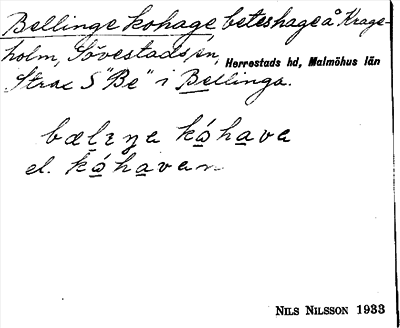 Bellinge kohage beteshage å Krage-
holm, Sövestads sn, Herrestads hd, Malmöhus län
Strax S "Be" i Bellinga.
bælıŋa kóhava
el. kóhavan
NILS NILSSON 1933